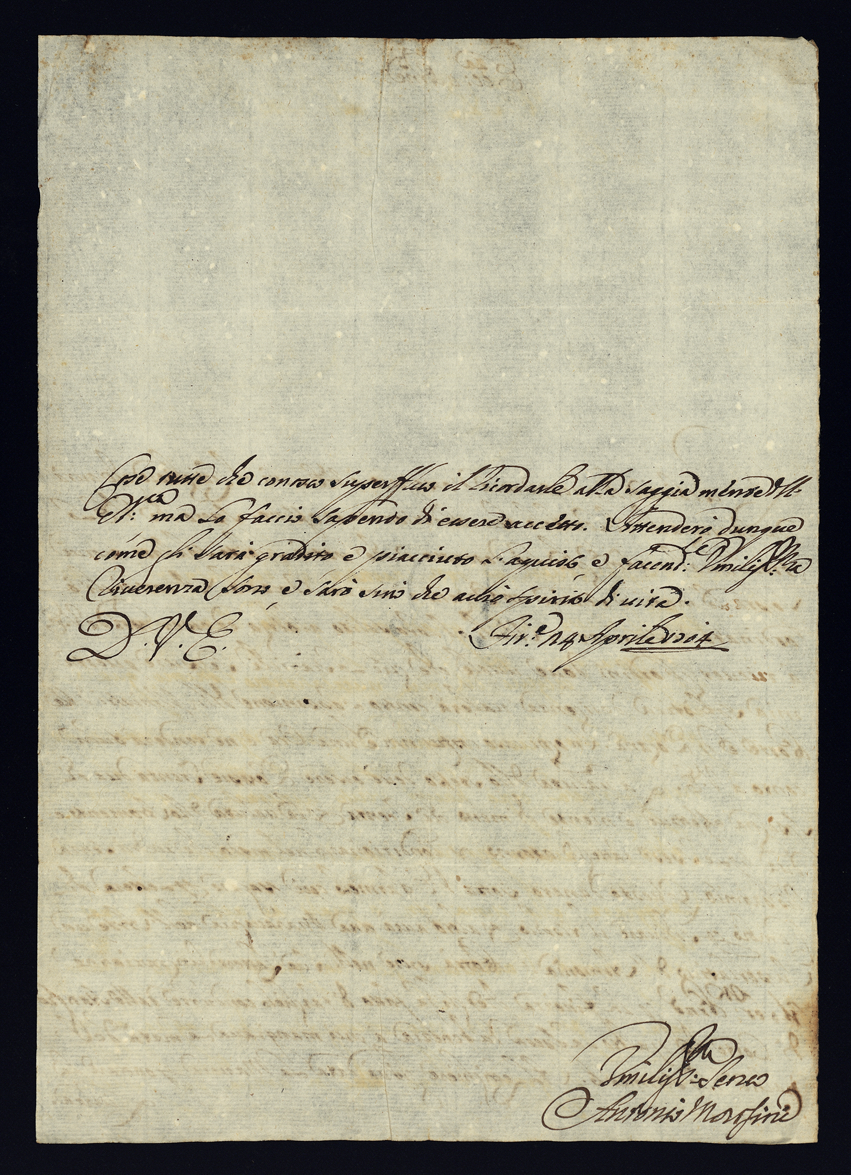 Cose tutte che conosco superfluo il ricordarle alla saggia mente di
ma Lo faccio sapendo di essere accetto. Attenderò dunque
come gli sarà gradito e piacciuto l'aquisto e facend: Umiliss:ma
Riverenza sono e sarò sino che avrò spirito di vita.
D. V. E.
Fir.e 14 Aprile 1704
Umiliss:mo Servo
Antonio Morosini